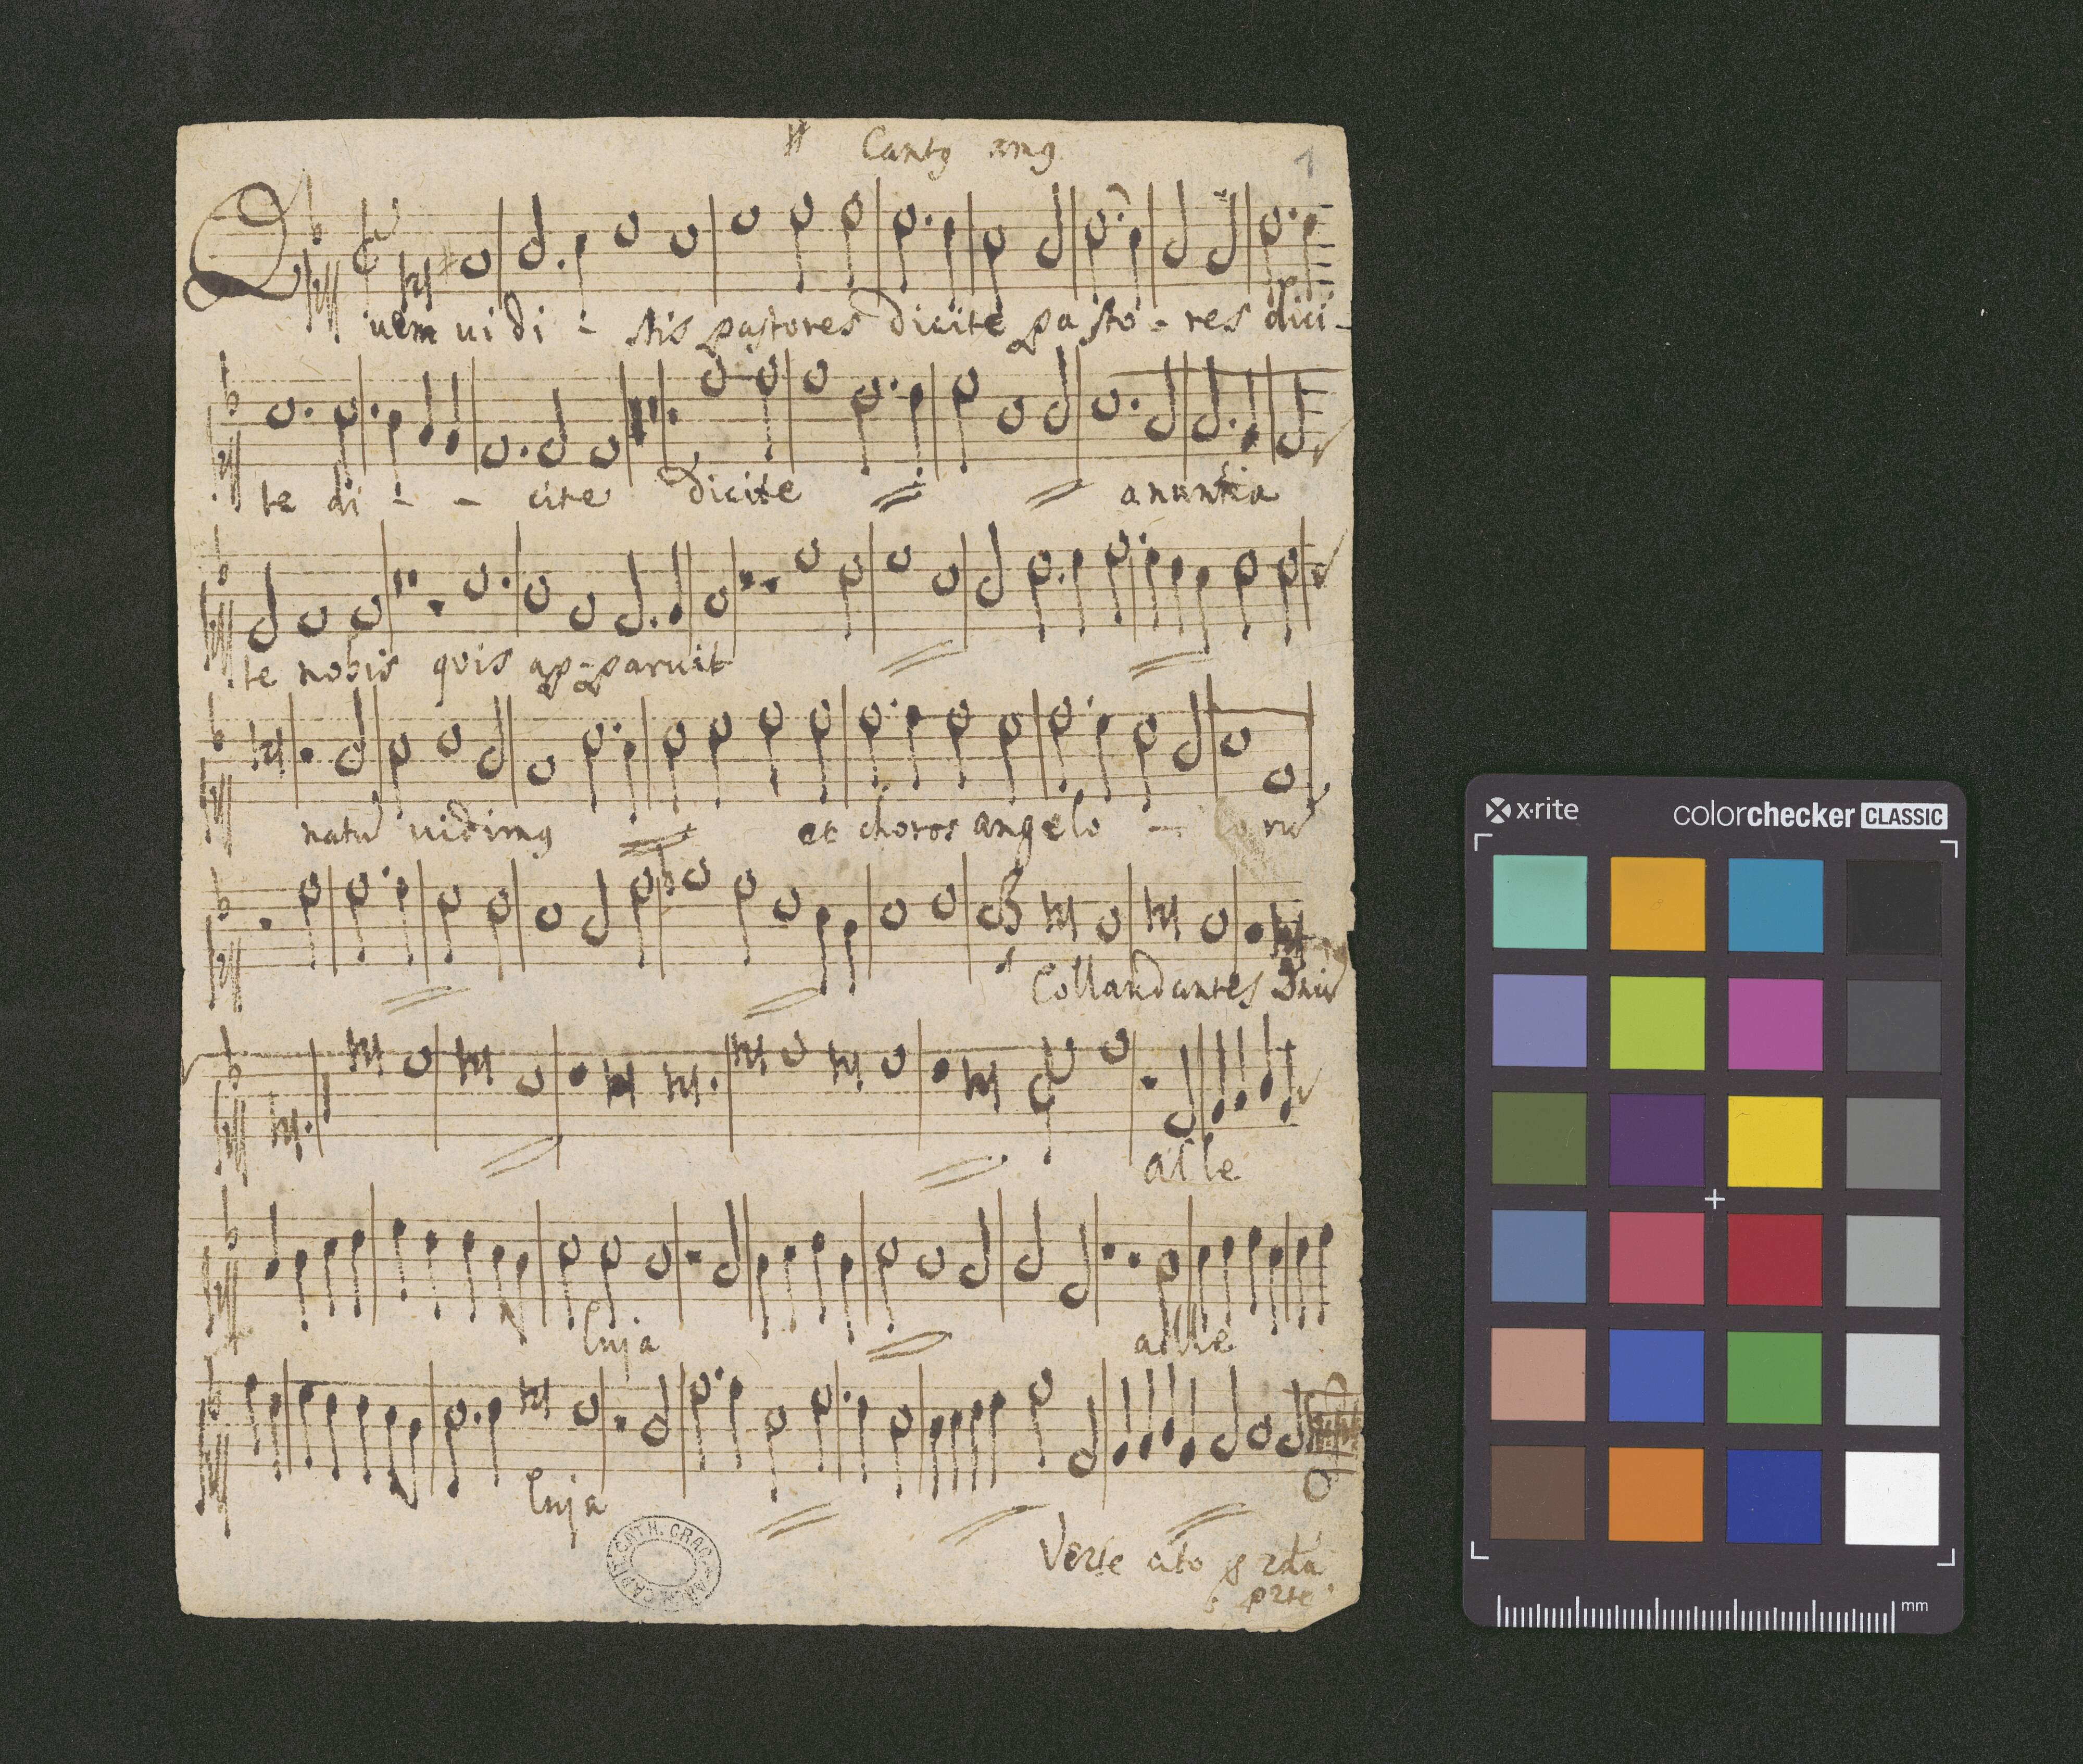 Cantg
1
Quem uidi - stis pastores dicite pasto - res dici -
te di - - cite dicite anuntia
te nobis quis ap-paruit
natu uidimg et choros angelo - ru
Collaudantes Dnu
alle
luja alle
luja
Verte cito p 2da
prte
CAPIT. CATH. CRAC.
x·rite
colorchecker CLASSIC
mm